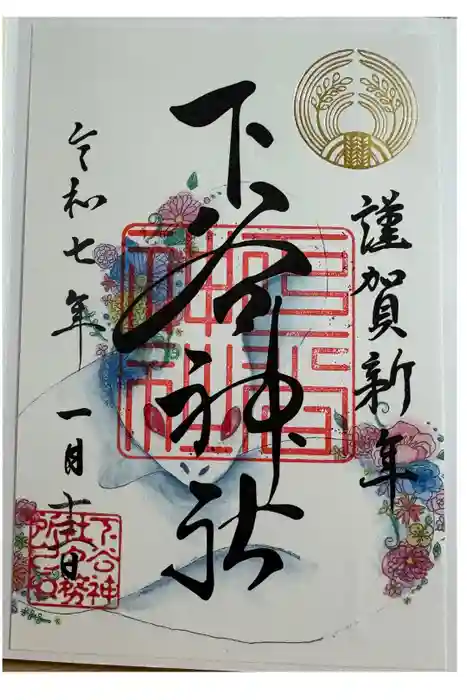 謹賀新年
下谷神社
令和七年
一月
日
下谷神